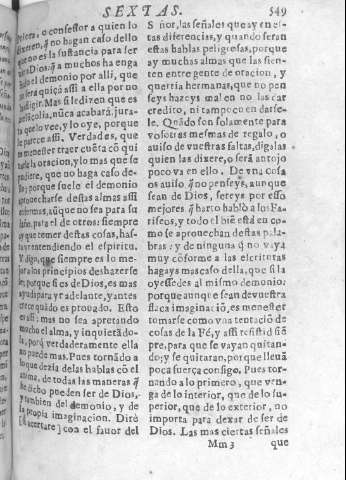 SEXTAS.
549
Priora, o confessor a quien lo
dixeren, q̃ no hagan caso dello
que no es la sustancia para ser
Dios, q̃ a muchos ha enga
el demonio por alli, que
sera quiçà assi a ella por no
afligir. Mas si le dizen que es
melãcolia, nũca acabarà, jura-
que lo vee, y lo oye, porque
le parece assi. Verdad es, que
es menester traer cuẽta cõ qui
la oracion, y lo mas que se
pudiere, que no haga caso de-
porque suele el demonio
aprouecharse destas almas assi
enfermas, aũque no sea para su
para el de otros: siempre
ay que temer destas cosas, has-
entendiendo el espiritu.
Y digo, que siempre es lo me-
jor a los principios deshazerse
porque si es de Dios, es mas
ayuda para yr adelante, y antes
crece quãdo es prouado. Esto
es assi: mas no sea apretando
mucho el alma, y inquietãdo-
porq̃ verdaderamente ella
no puede mas. Pues tornãdo a
lo que dezia delas hablas cõ el
anima, de todas las maneras q̃
he dicho pueden ser de Dios,
y tambien del demonio, y de
la propia imaginacion. Dirè
[si acertare] con el fauor del
Señor, las señales que ay en es-
tas diferencias, y quando seran
estas hablas peligrosas, porque
ay muchas almas que las sien-
ten entre gente de oracion, y
querria hermanas, que no pen
seys hazeys mal en no las dar
credito, ni tampoco en darse-
le. Quãdo son solamente para
vosotras mesmas de regalo, o
auiso de vuestras faltas, digalas
quien las dixere, o sea antojo
poco va en ello. De vna cosa
os auiso q̃ no penseys, aunque
sean de Dios, sereys por esso
mejores q̃ harto hablò a los Fa-
riseos, y todo el biẽ està en co-
mo se aprouechan destas pala-
bras: y de ninguna q̃ no vaya
muy cõforme a las escrituras
hagays mas caso della, que si la
oyessedes al mismo demonio:
porque aunque sean de vuestra
flaca imaginaciõ, es menester
tomarse como vna tentaciõ de
cosas de la Fè, y assi resistid siẽ
pre, para que se vayan quitan-
do; y se quitaran, porque lleuã
poca fuerça consigo. Pues tor-
nando a lo primero, que ven-
ga de lo interior, que de lo su-
perior, que de lo exterior, no
importa para dexar de ser de
Dios. Las mas ciertas señales
Mm 3 que